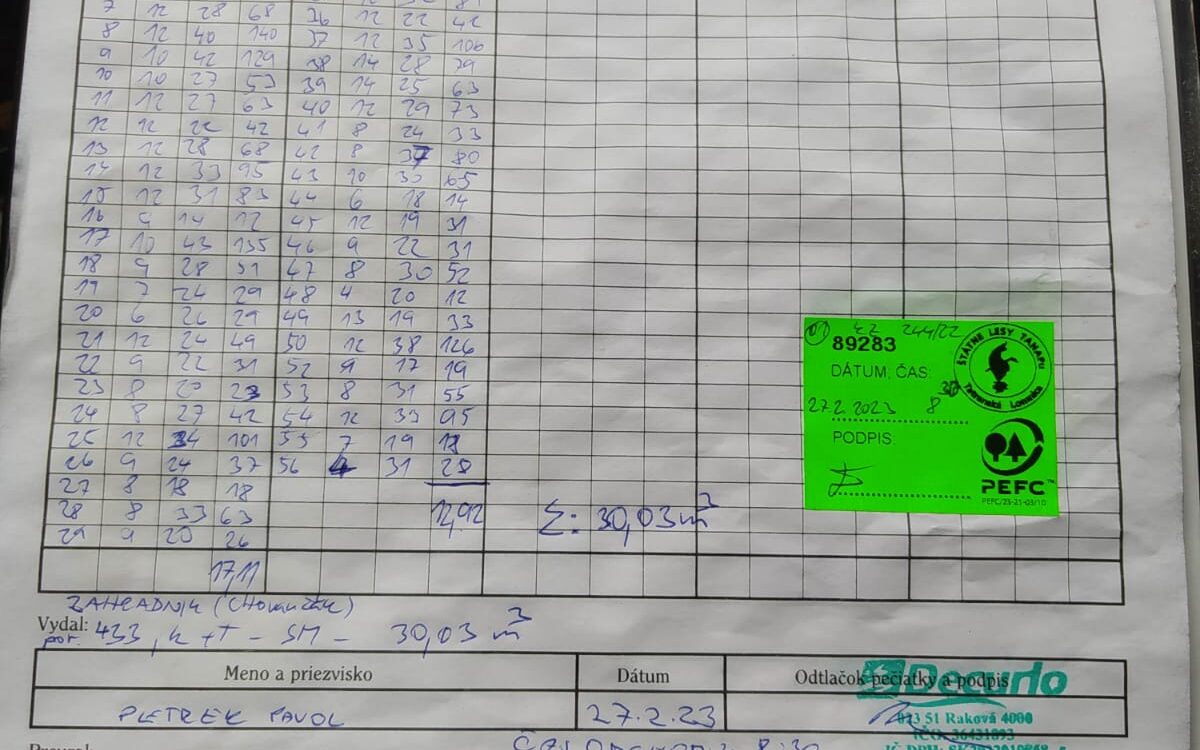 7 12 28 68 36 12 22 42
8 12 40 140 37 12 35 106
9 10 42 129 38 14 28 79
10 10 27 53 39 14 25 63
11 12 27 63 40 12 29 73
12 12 22 42 41 8 24 33
13 12 28 68 42 8 37 80
14 12 33 95 43 10 30 65
15 12 31 83 44 6 18 14
16 9 14 12 45 12 19 31
17 10 43 135 46 9 22 31
18 9 28 51 47 8 30 52
19 7 24 29 48 4 20 12
20 6 26 29 49 13 19 33
21 12 24 49 50 12 38 126
22 9 22 31 52 9 17 19
23 8 20 23 53 8 31 55
24 8 27 42 54 12 33 95
25 12 34 101 55 7 19 18
26 9 24 37 56 4 31 28
27 8 18 18
28 8 33 63 12,92 Σ: 30,03 m³
29 9 20 26
17,11
01 EZ 244/22
89283
DÁTUM, ČAS:
27.2.2023 8 30
PODPIS:
ŠTÁTNE LESY TANAPu
Tatranská Lomnica
PEFC™
PEFC/23-21-03/10
ZAHRADNIK
Vydal:
por. 433, k+T - SM - 30,03 m³
Meno a priezvisko Dátum Odtlačok pečiatky a podpis
Decurlo
PLETREK PAVOL 27.2.23
023 51 Raková 4000
IČO: 36431893
8:30